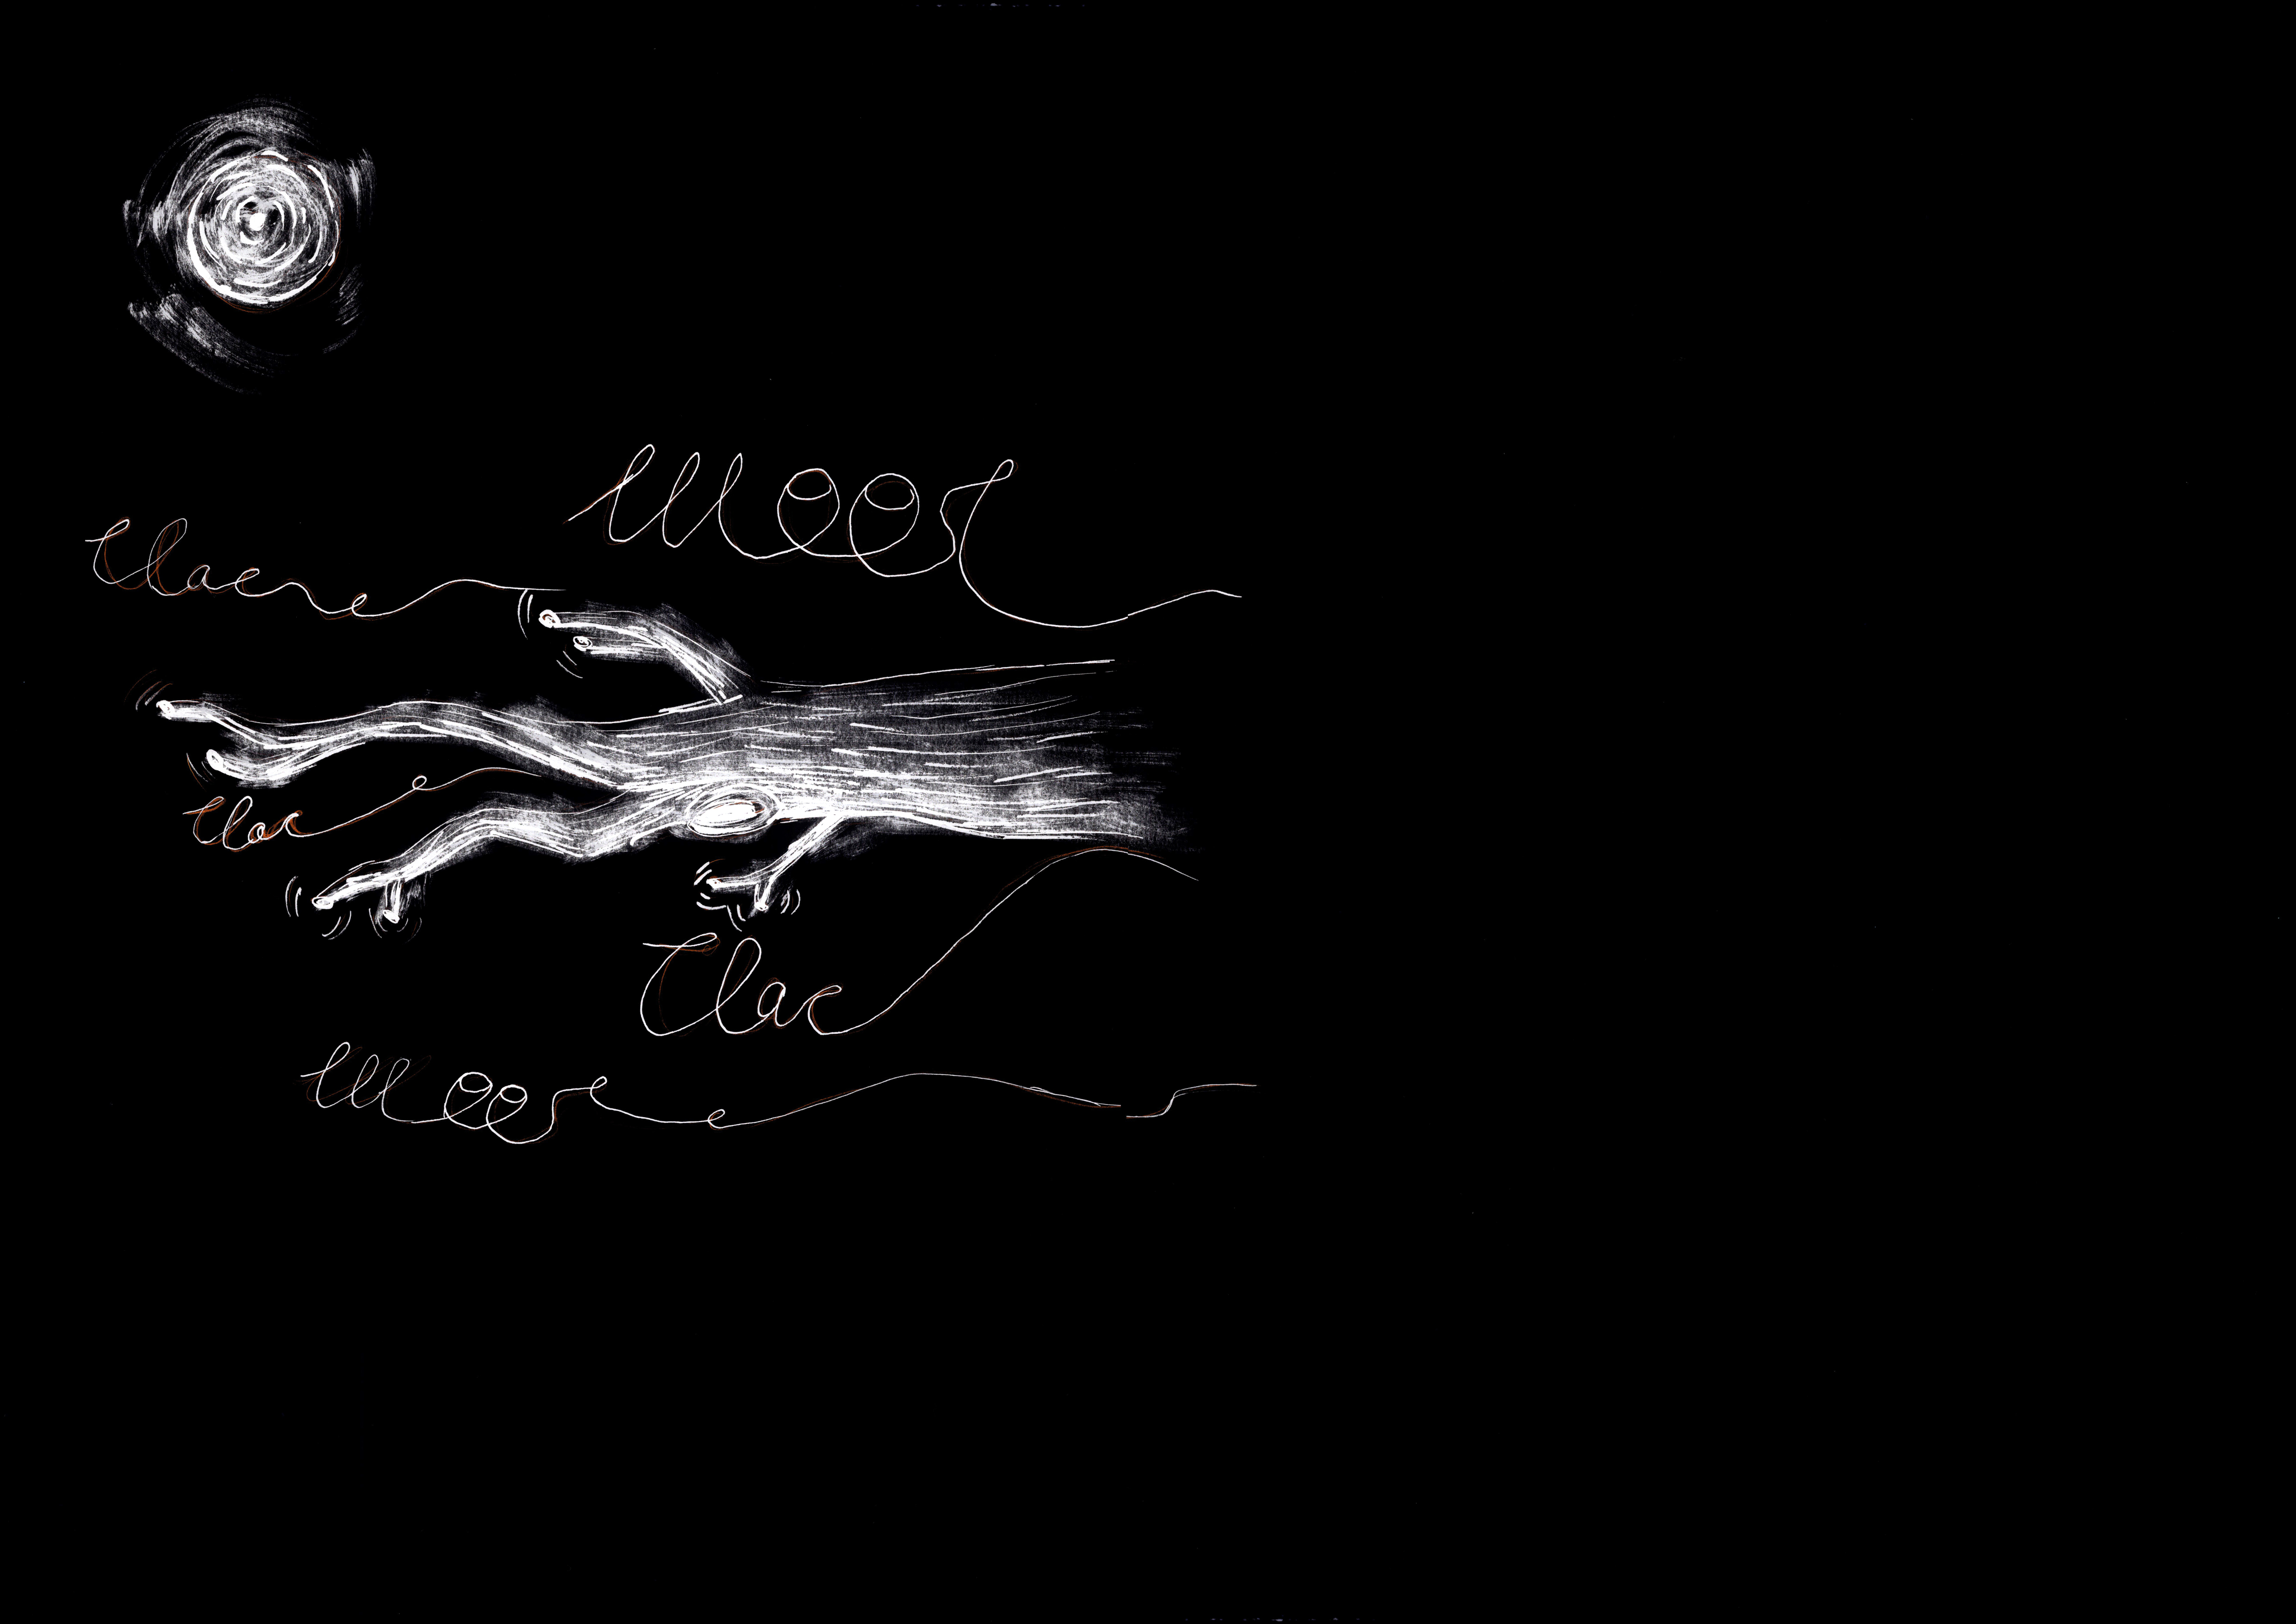 Woos
Clac
Clac
Clac
Woos